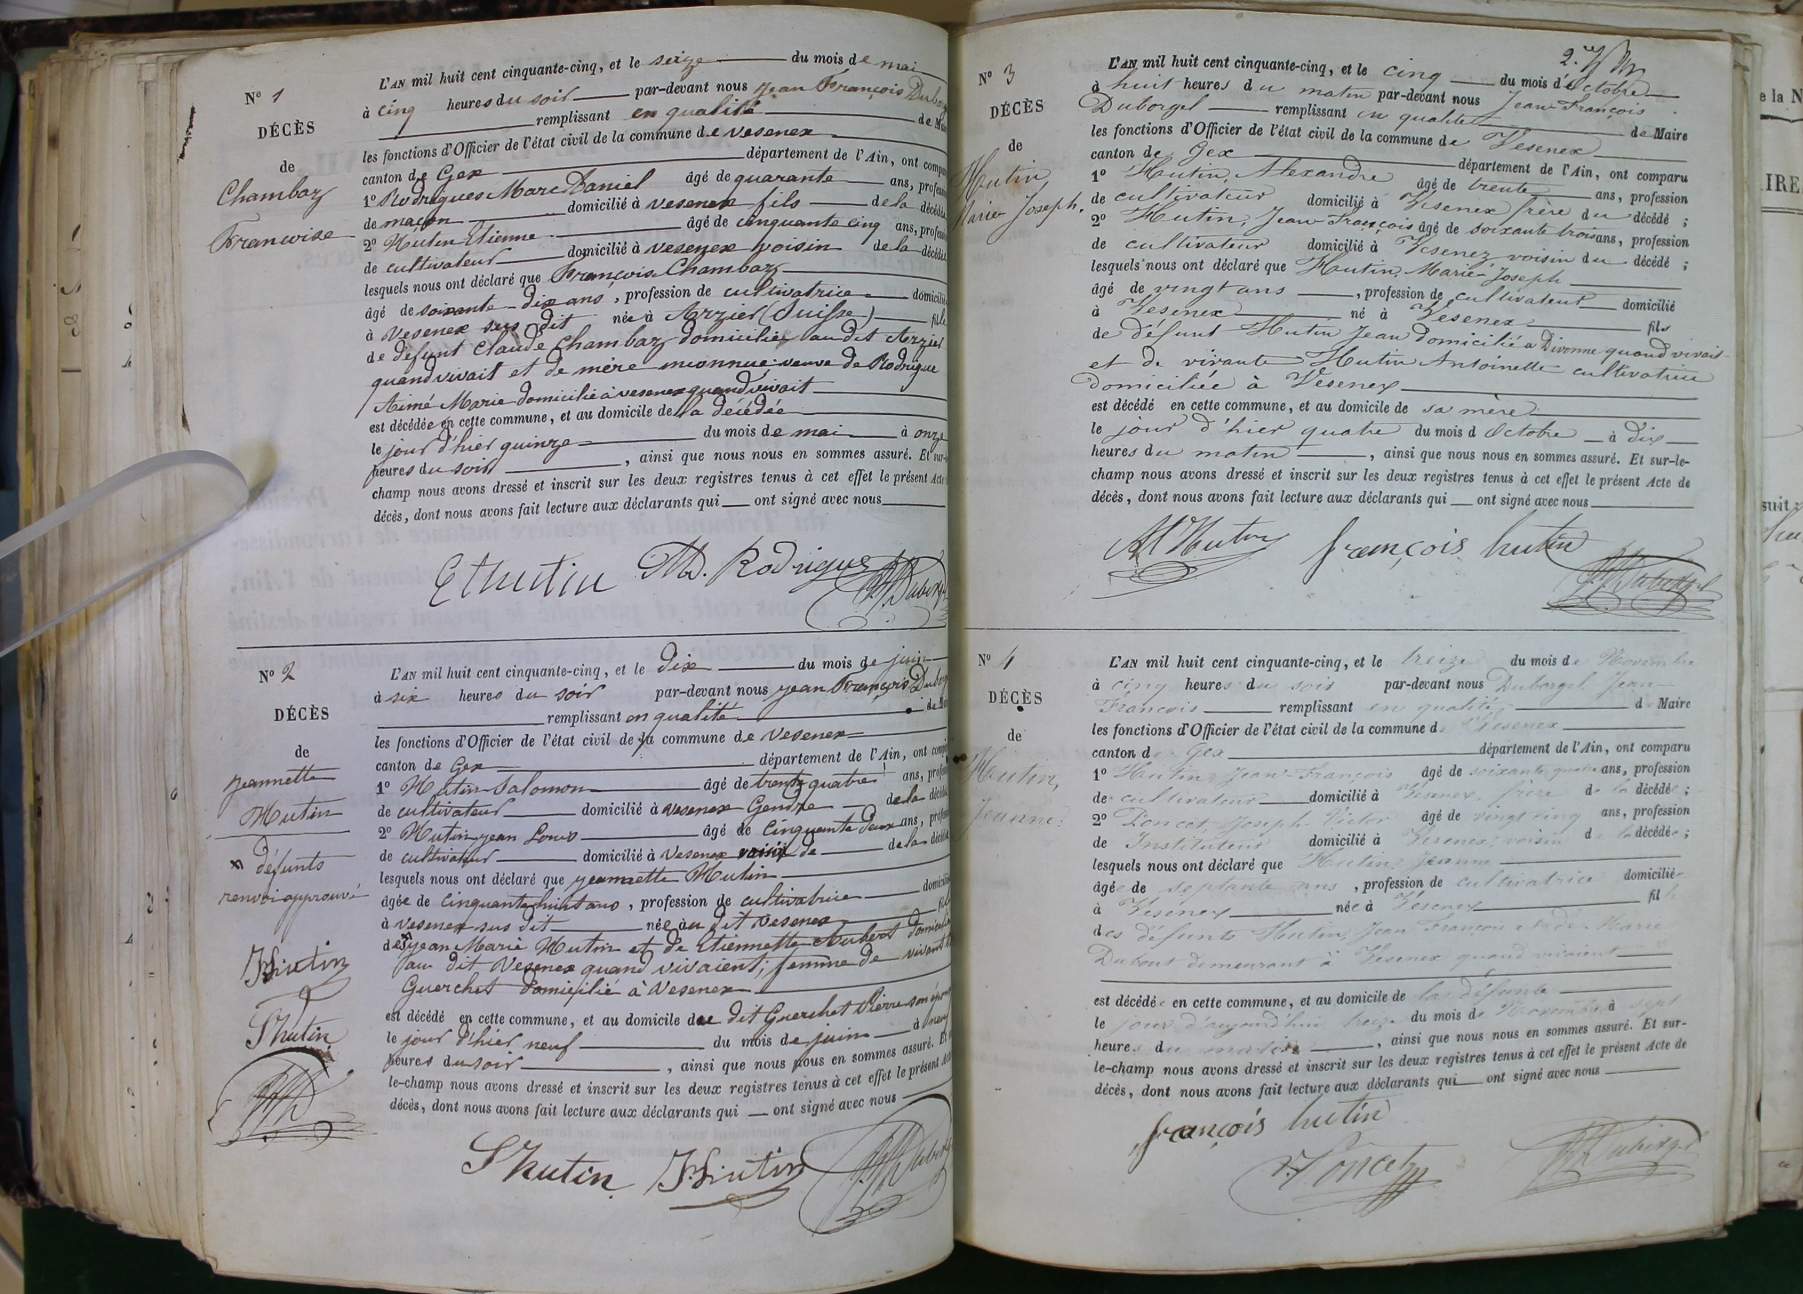 N° 1
DÉCÈS
de
Chambaz
Francoise
L'AN mil huit cent cinquante-cinq, et le seize du mois de mai
à cinq heures du soir par-devant nous Jean François Dubor
remplissant en qualité de Ma
les fonctions d'Officier de l'état civil de la commune de Vesenex
canton de Gex département de l'Ain, ont compa
1° Rodrigues Marc Daniel âgé de quarante ans, profes
de maçon domicilié à Vesenex fils de la décédé
2° Hutin Etienne âgé de cinquante cinq ans, profes
de cultivateur domicilié à Vesenex voisin de la décédé
lesquels nous ont déclaré que François Chambaz
âgé de soixante-dix ans, profession de cultivatrice domicilié
à Vesenex sus dit née à Arzier (Suisse) fille
de défunt Claude Chambaz domicilié au dit Arzier
quand vivait et de mère inconnue veuve de Rodrigue
Aimé Marie domicilié à Vesenex quand vivait
est décédée en cette commune, et au domicile de la décédée
le jour d'hier quinze du mois de mai à onze
heures du soir, ainsi que nous nous en sommes assuré. Et sur-
champ nous avons dressé et inscrit sur les deux registres tenus à cet effet le présent Acte
décès, dont nous avons fait lecture aux déclarants qui ont signé avec nous
Et hutin MD. Rodrigue
N° 2
DÉCÈS
de
Jeannette
Hutin
défunts
renvoi approuvé
J. Hutin
S hutin
L'AN mil huit cent cinquante-cinq, et le dix du mois de juin
à six heures du soir par-devant nous Jean François Dubor
remplissant en qualité de Ma
les fonctions d'Officier de l'état civil de la commune de Vesenex
canton de Gex département de l'Ain, ont comp
1° Hutin Salomon âgé de trente quatre ans, profes
de cultivateur domicilié à Vesenex Gendre de la décéd
2° Hutin jean Louis âgé de cinquante deux ans, profes
de cultivateur domicilié à Vesenex voisin de de la décéd
lesquels nous ont déclaré que Jeannette Hutin
âgée de cinquante huit ans, profession de cultivatrice domicili
à Vesenex sus dit née au dit Vesenex
de jean Marie Hutin et de Etiennette Aubert domicilié
au dit Vesenex quand vivaient; femme de vivant
Guerchet domicilié à Vesenex
est décédé en cette commune, et au domicile de dit Guerchet Pierre son épou
le jour d'hier neuf du mois de juin à neuf
heures du soir, ainsi que nous nous en sommes assuré. Et
le-champ nous avons dressé et inscrit sur les deux registres tenus à cet effet le présent Acte
décès, dont nous avons fait lecture aux déclarants qui ont signé avec nous
S hutin J. Hutin
N° 3
DÉCÈS
de
Hutin
Marie Joseph.
L'AN mil huit cent cinquante-cinq, et le cinq du mois d'Octobre
à huit heures du matin par-devant nous Jean François
Duborgel remplissant en qualité de Maire
les fonctions d'Officier de l'état civil de la commune de Vesenex
canton de Gex département de l'Ain, ont comparu
1° Hutin, Alexandre âgé de trente ans, profession
de cultivateur domicilié à Vesenex frère du décédé ;
2° Hutin, Jean François âgé de soixante trois ans, profession
de cultivateur domicilié à Vesenex voisin du décédé ;
lesquels nous ont déclaré que Hutin, Marie-Joseph
âgé de vingt ans, profession de cultivateur domicilié
à Vesenex né à Vesenex fils
de défunt Hutin Jean domicilié à Divonne quand vivait
et de vivante Hutin Antoinette cultivatrice
domiciliée à Vesenex
est décédé en cette commune, et au domicile de sa mère
le jour d'hier quatre du mois d'Octobre à dix
heures du matin, ainsi que nous nous en sommes assuré. Et sur-le-
champ nous avons dressé et inscrit sur les deux registres tenus à cet effet le présent Acte de
décès, dont nous avons fait lecture aux déclarants qui ont signé avec nous
Al Hutin françois hutin
N° 4
DÉCÈS
de
Hutin,
Jeanne
L'AN mil huit cent cinquante-cinq, et le treize du mois de Novembre
à cinq heures du soir par-devant nous Duborgel Jean
François remplissant en qualité de Maire
les fonctions d'Officier de l'état civil de la commune de Vesenex
canton de Gex département de l'Ain, ont comparu
1° Hutin Jean-François âgé de soixante quatre ans, profession
de cultivateur domicilié à Vesenex, frère de la décédée ;
2° Poncet Joseph Victor âgé de vingt cinq ans, profession
de Instituteur domicilié à Vesenex, voisin de la décédée ;
lesquels nous ont déclaré que Hutin, Jeanne
âgée de septante ans, profession de cultivatrice domiciliée
à Vesenex née à Vesenex fille
des défunts Hutin, Jean François et de Marie
Dubout demeurant à Vesenex quand vivaient
est décédée en cette commune, et au domicile de la défunte
le jour d'aujourd'hui treize du mois de Novembre à sept
heures du matin, ainsi que nous nous en sommes assuré. Et sur-
le-champ nous avons dressé et inscrit sur les deux registres tenus à cet effet le présent Acte de
décès, dont nous avons fait lecture aux déclarants qui ont signé avec nous
françois hutin
V. Poncet